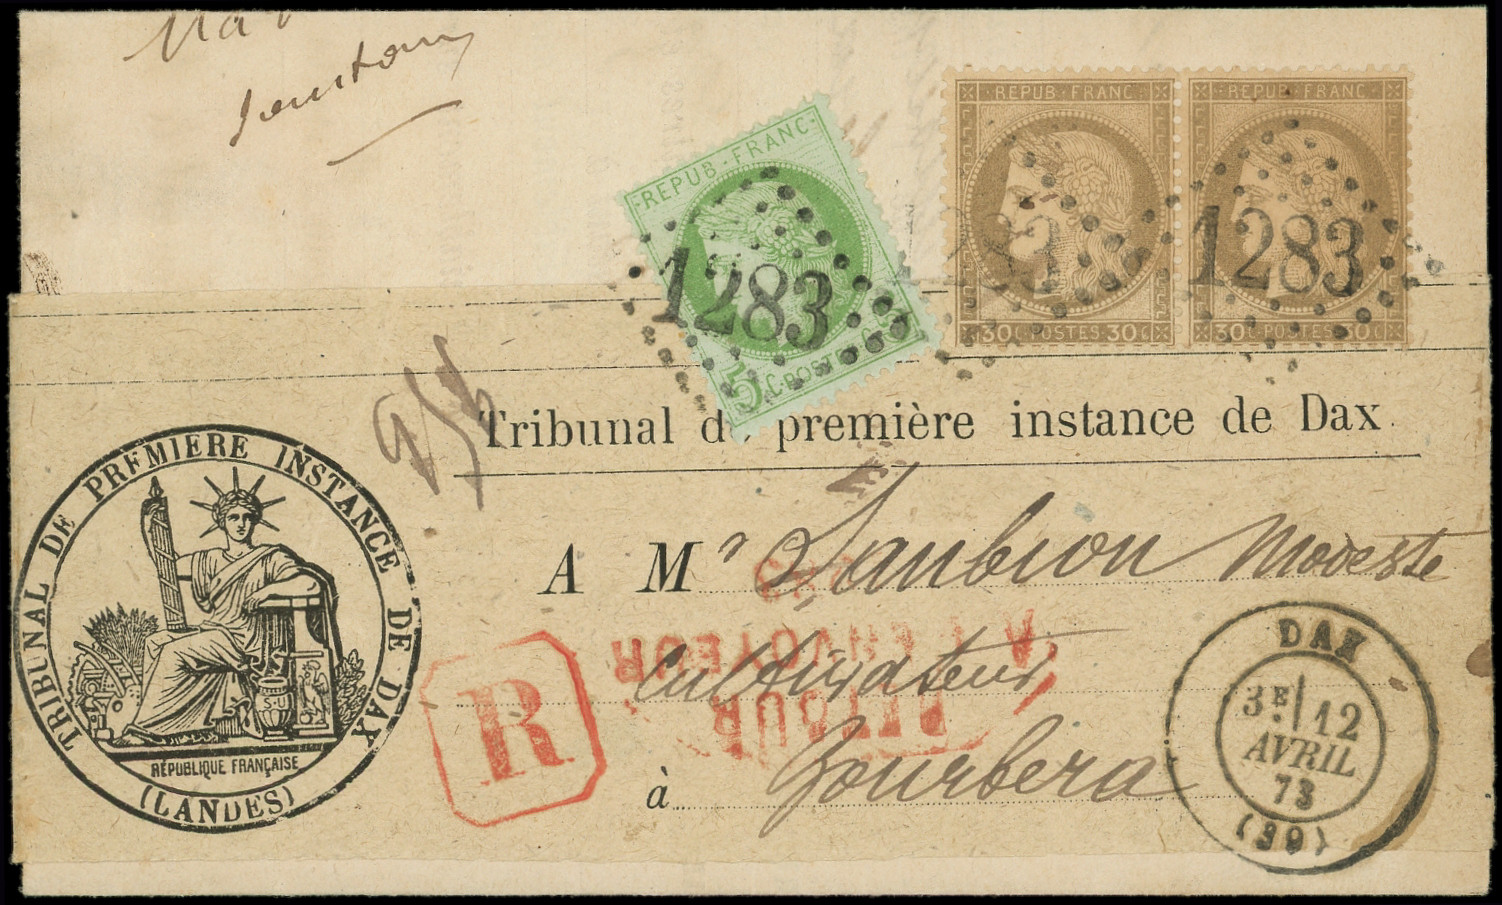 REPUB·FRANC·
1283
5 C·POSTES
REPUB·FRANC·
283
30C·POSTES 30C
REPUB·FRANC·
1283
30C·POSTES 30C
Tribunal de première instance de Dax
TRIBUNAL DE PREMIERE INSTANCE DE DAX
RÉPUBLIQUE FRANÇAISE
(LANDES)
A Mr Daubion Modeste
Cultivateur
à Gourbera
R
RETOUR
A L'ENVOYEUR
DAX
3E 12
AVRIL
73
(39)